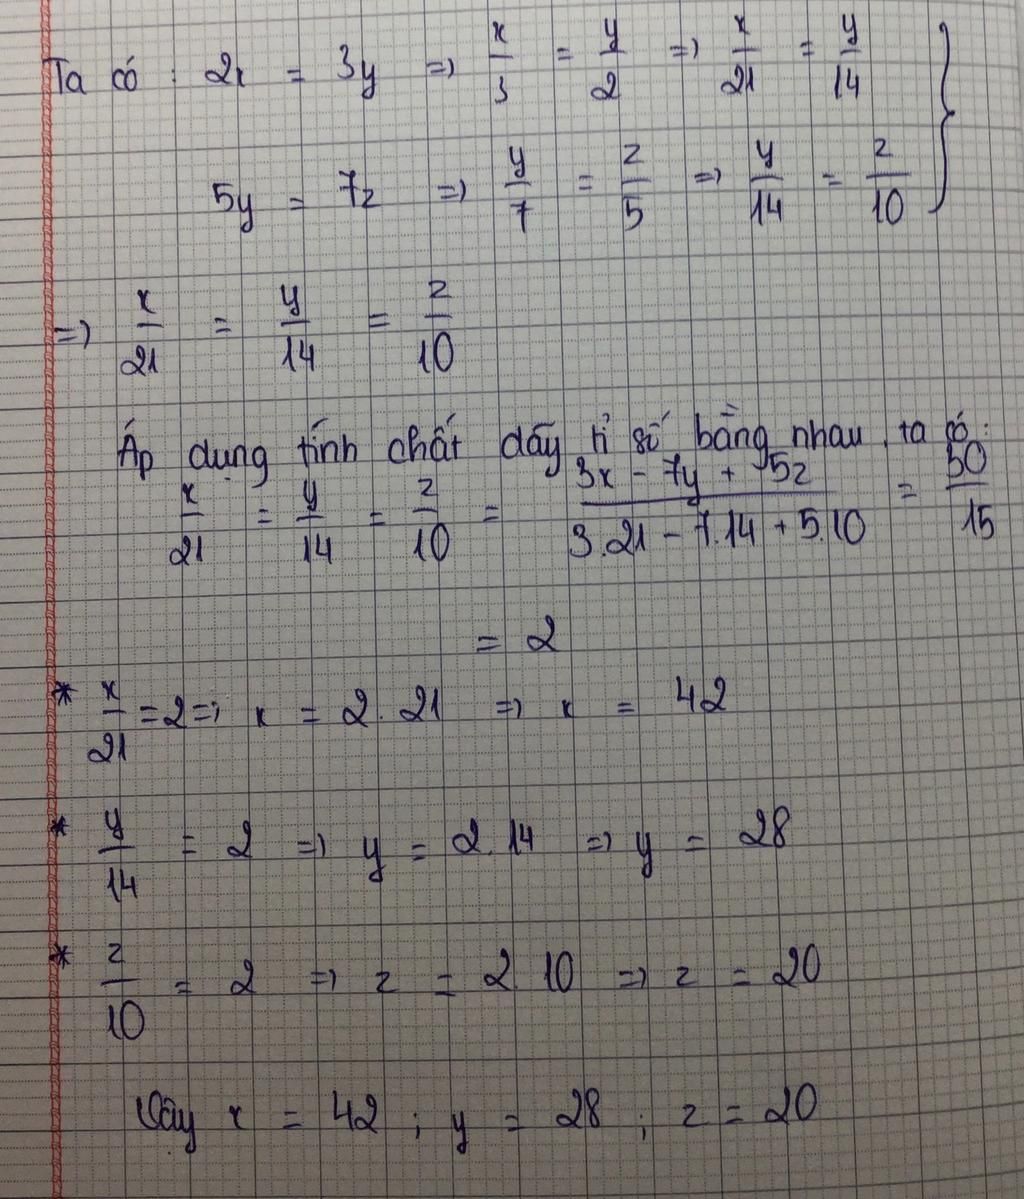 Ta có : 2x = 3y => x/3 = y/2 => x/21 = y/14 }
5y = 7z => y/7 = z/5 => y/14 = z/10
=> x/21 = y/14 = z/10
Áp dụng tính chất dãy tỉ số bằng nhau, ta có:
x/21 = y/14 = z/10 = (3x - 7y + 5z)/(3.21 - 7.14 + 5.10) = 30/15
= 2
* x/21 = 2 => x = 2.21 => x = 42
* y/14 = 2 => y = 2.14 => y = 28
* z/10 = 2 => z = 2.10 => z = 20
Vậy x = 42 ; y = 28 ; z = 20